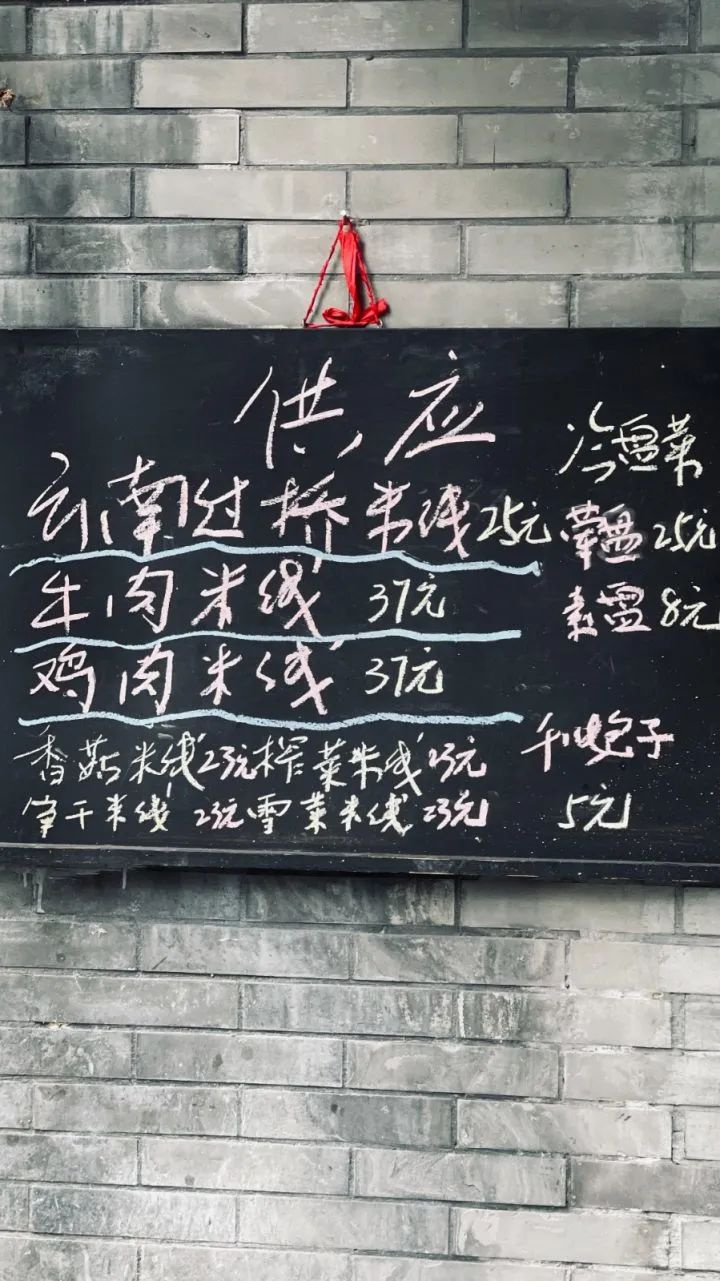 供应
云南过桥米线 25元
牛肉米线 37元
鸡肉米线 37元
香菇米线 23元 榨菜米线 23元
笋干米线 23元 雪菜米线 23元
冷盘菜
荤盘 25元
素盘 8元
子
5元